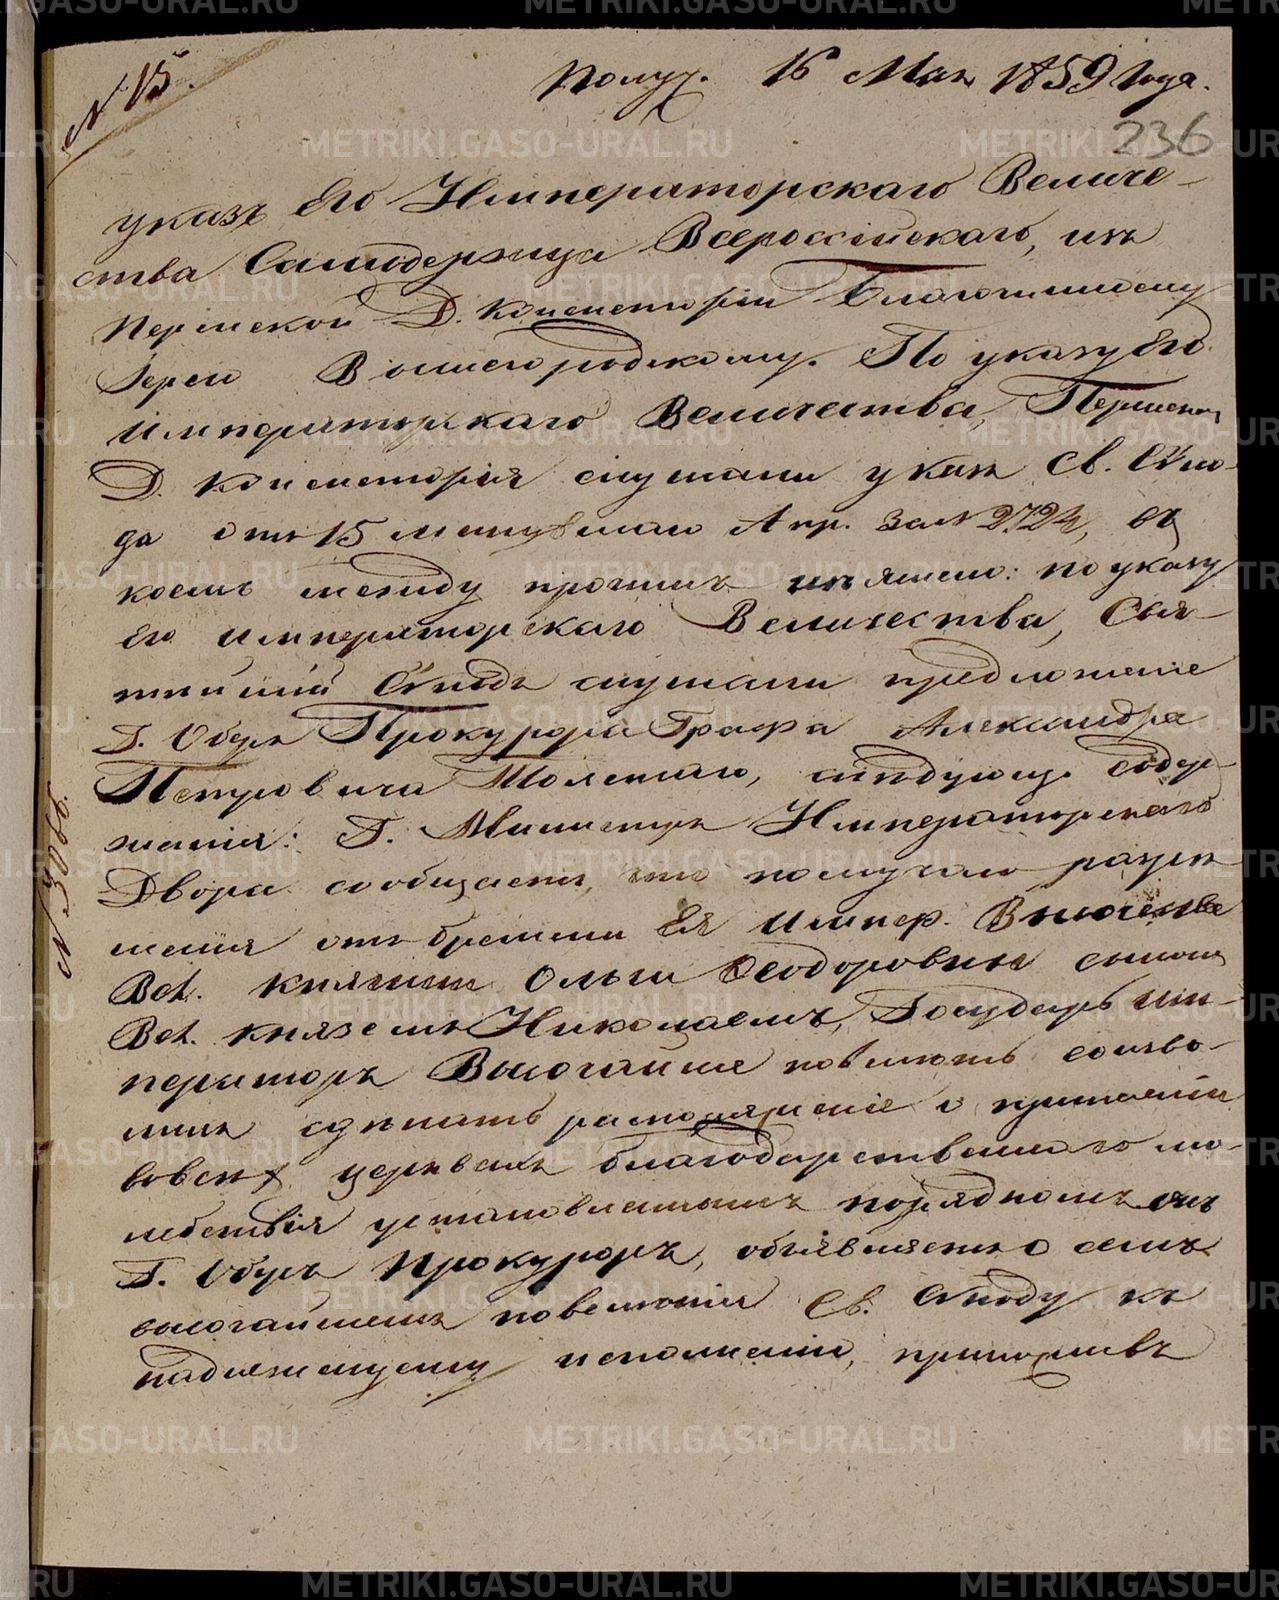 N 15.
Получ. 16 Мая 1859 года.
236
указъ Его Императорскаго Величе-
ства Самодержца Всероссійскаго, изъ
Пермской Д. Консисторіи Благочинному
Іерею Вышегородскому. По указу Его
Императорскаго Величества, Пермская
Д. Консисторія слушали указъ Св. Сѵно-
да отъ 15 минувшаго Апр. за N 2724, въ
коемъ между прочимъ изъяснено: по указу
Его Императорскаго Величества, Свя-
тѣйшій Сѵнодъ слушали предложеніе
Г. Оберъ Прокурора Графа Александра
Петровича Толстаго, слѣдующ. содер-
жанія: Г. Министръ Императорскаго
Двора сообщаетъ, что по случаю разрѣ-
шенія отъ бремени Ея Импер. Высочества
Вел. Княгини Ольги Ѳеодоровны сыномъ
Вел. Княземъ Николаемъ, Государь Им-
ператоръ Высочайше повелѣть соизво-
лилъ сдѣлать распоряженіе о принесеніи
во всѣхъ церквахъ благодарственнаго мо-
лебствія установленнымъ порядкомъ онъ
Г. Оберъ Прокуроръ, объявляетъ о семъ
высочайшемъ повелѣніи Св. Сѵноду къ
надлежащему исполненію,
N 3066.
METRIKI.GASO-URAL.RU